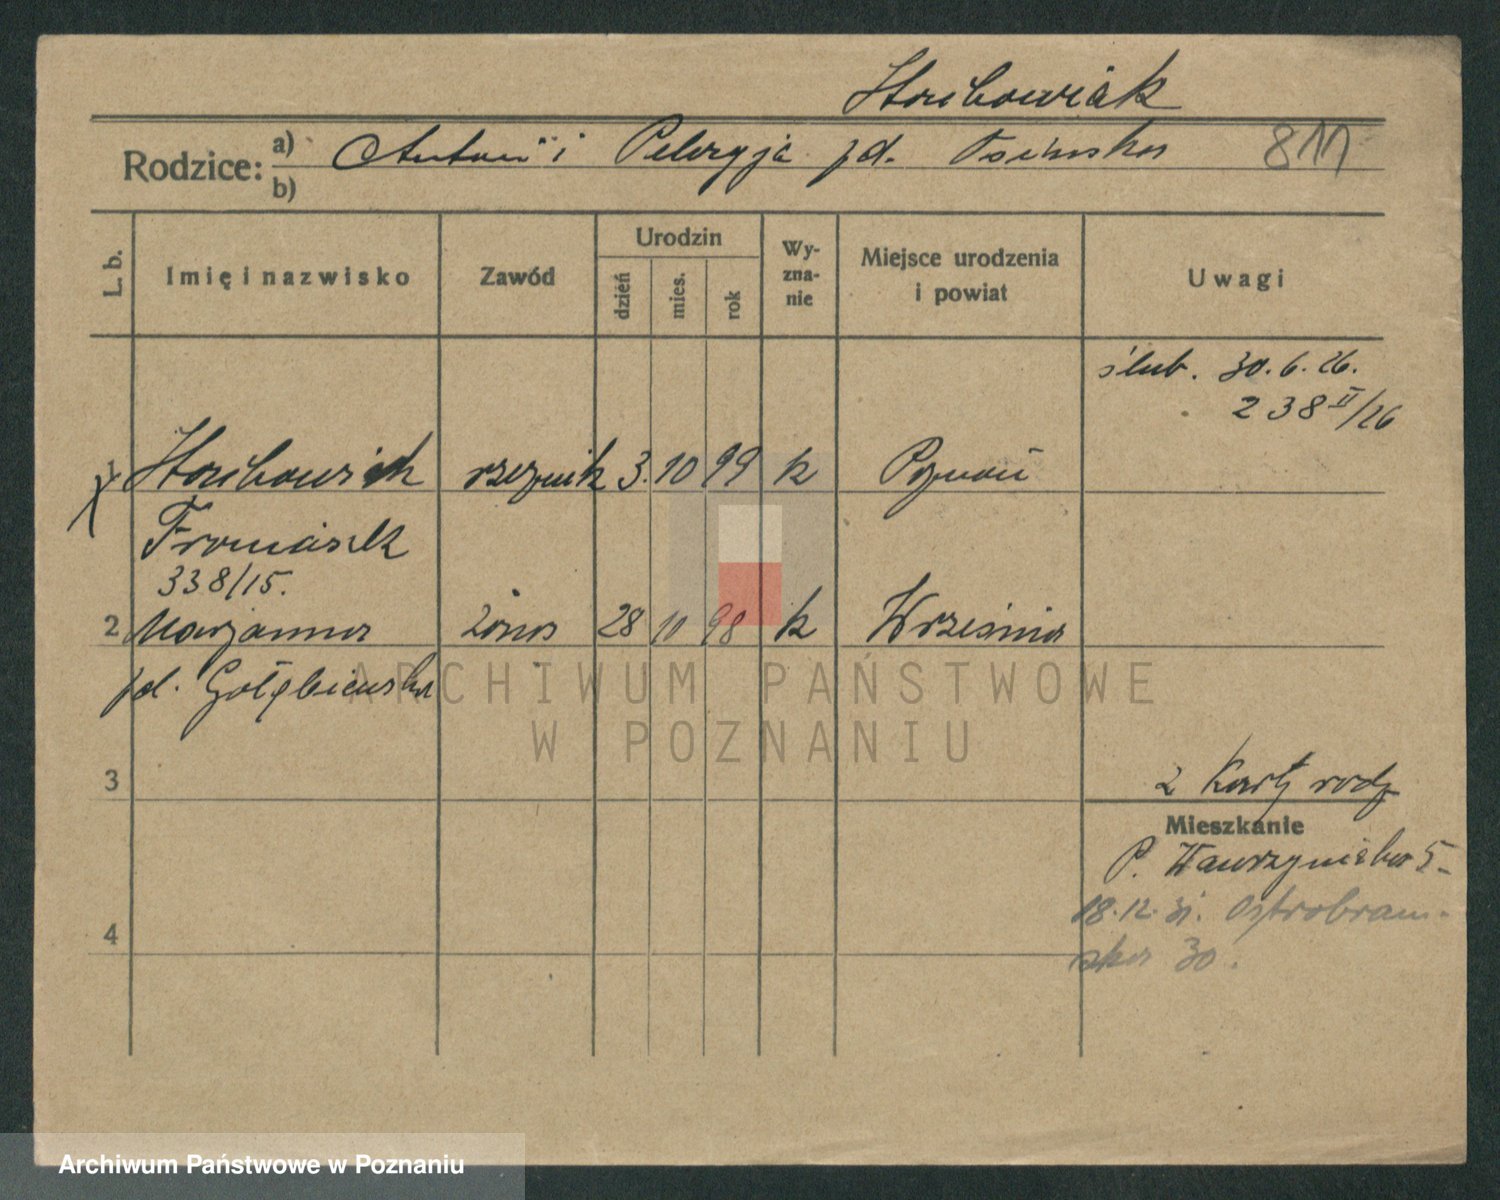 Hozubowiak
Rodzice: a) Antoni i Pelagja zd. 811
b)
L. b.
Imię i nazwisko
Zawód
Urodzin
dzień
mies.
rok
Wy-
zna-
nie
Miejsce urodzenia
i powiat
Uwagi
ślub. 30.6.26.
238 II/26
1 rzeznik 3. 10 99 k Poznań
Franciszek
338/15.
2 Marjanna żona 28 10 98 k Września
zd. Gołębiewska
3
2 Karty rodz
Mieszkanie
P. Wawrzyniaka 5-
18.12.31. Ostrobram-
4
ska 30.
ARCHIWUM PAŃSTWOWE
W POZNANIU
Archiwum Państwowe w Poznaniu